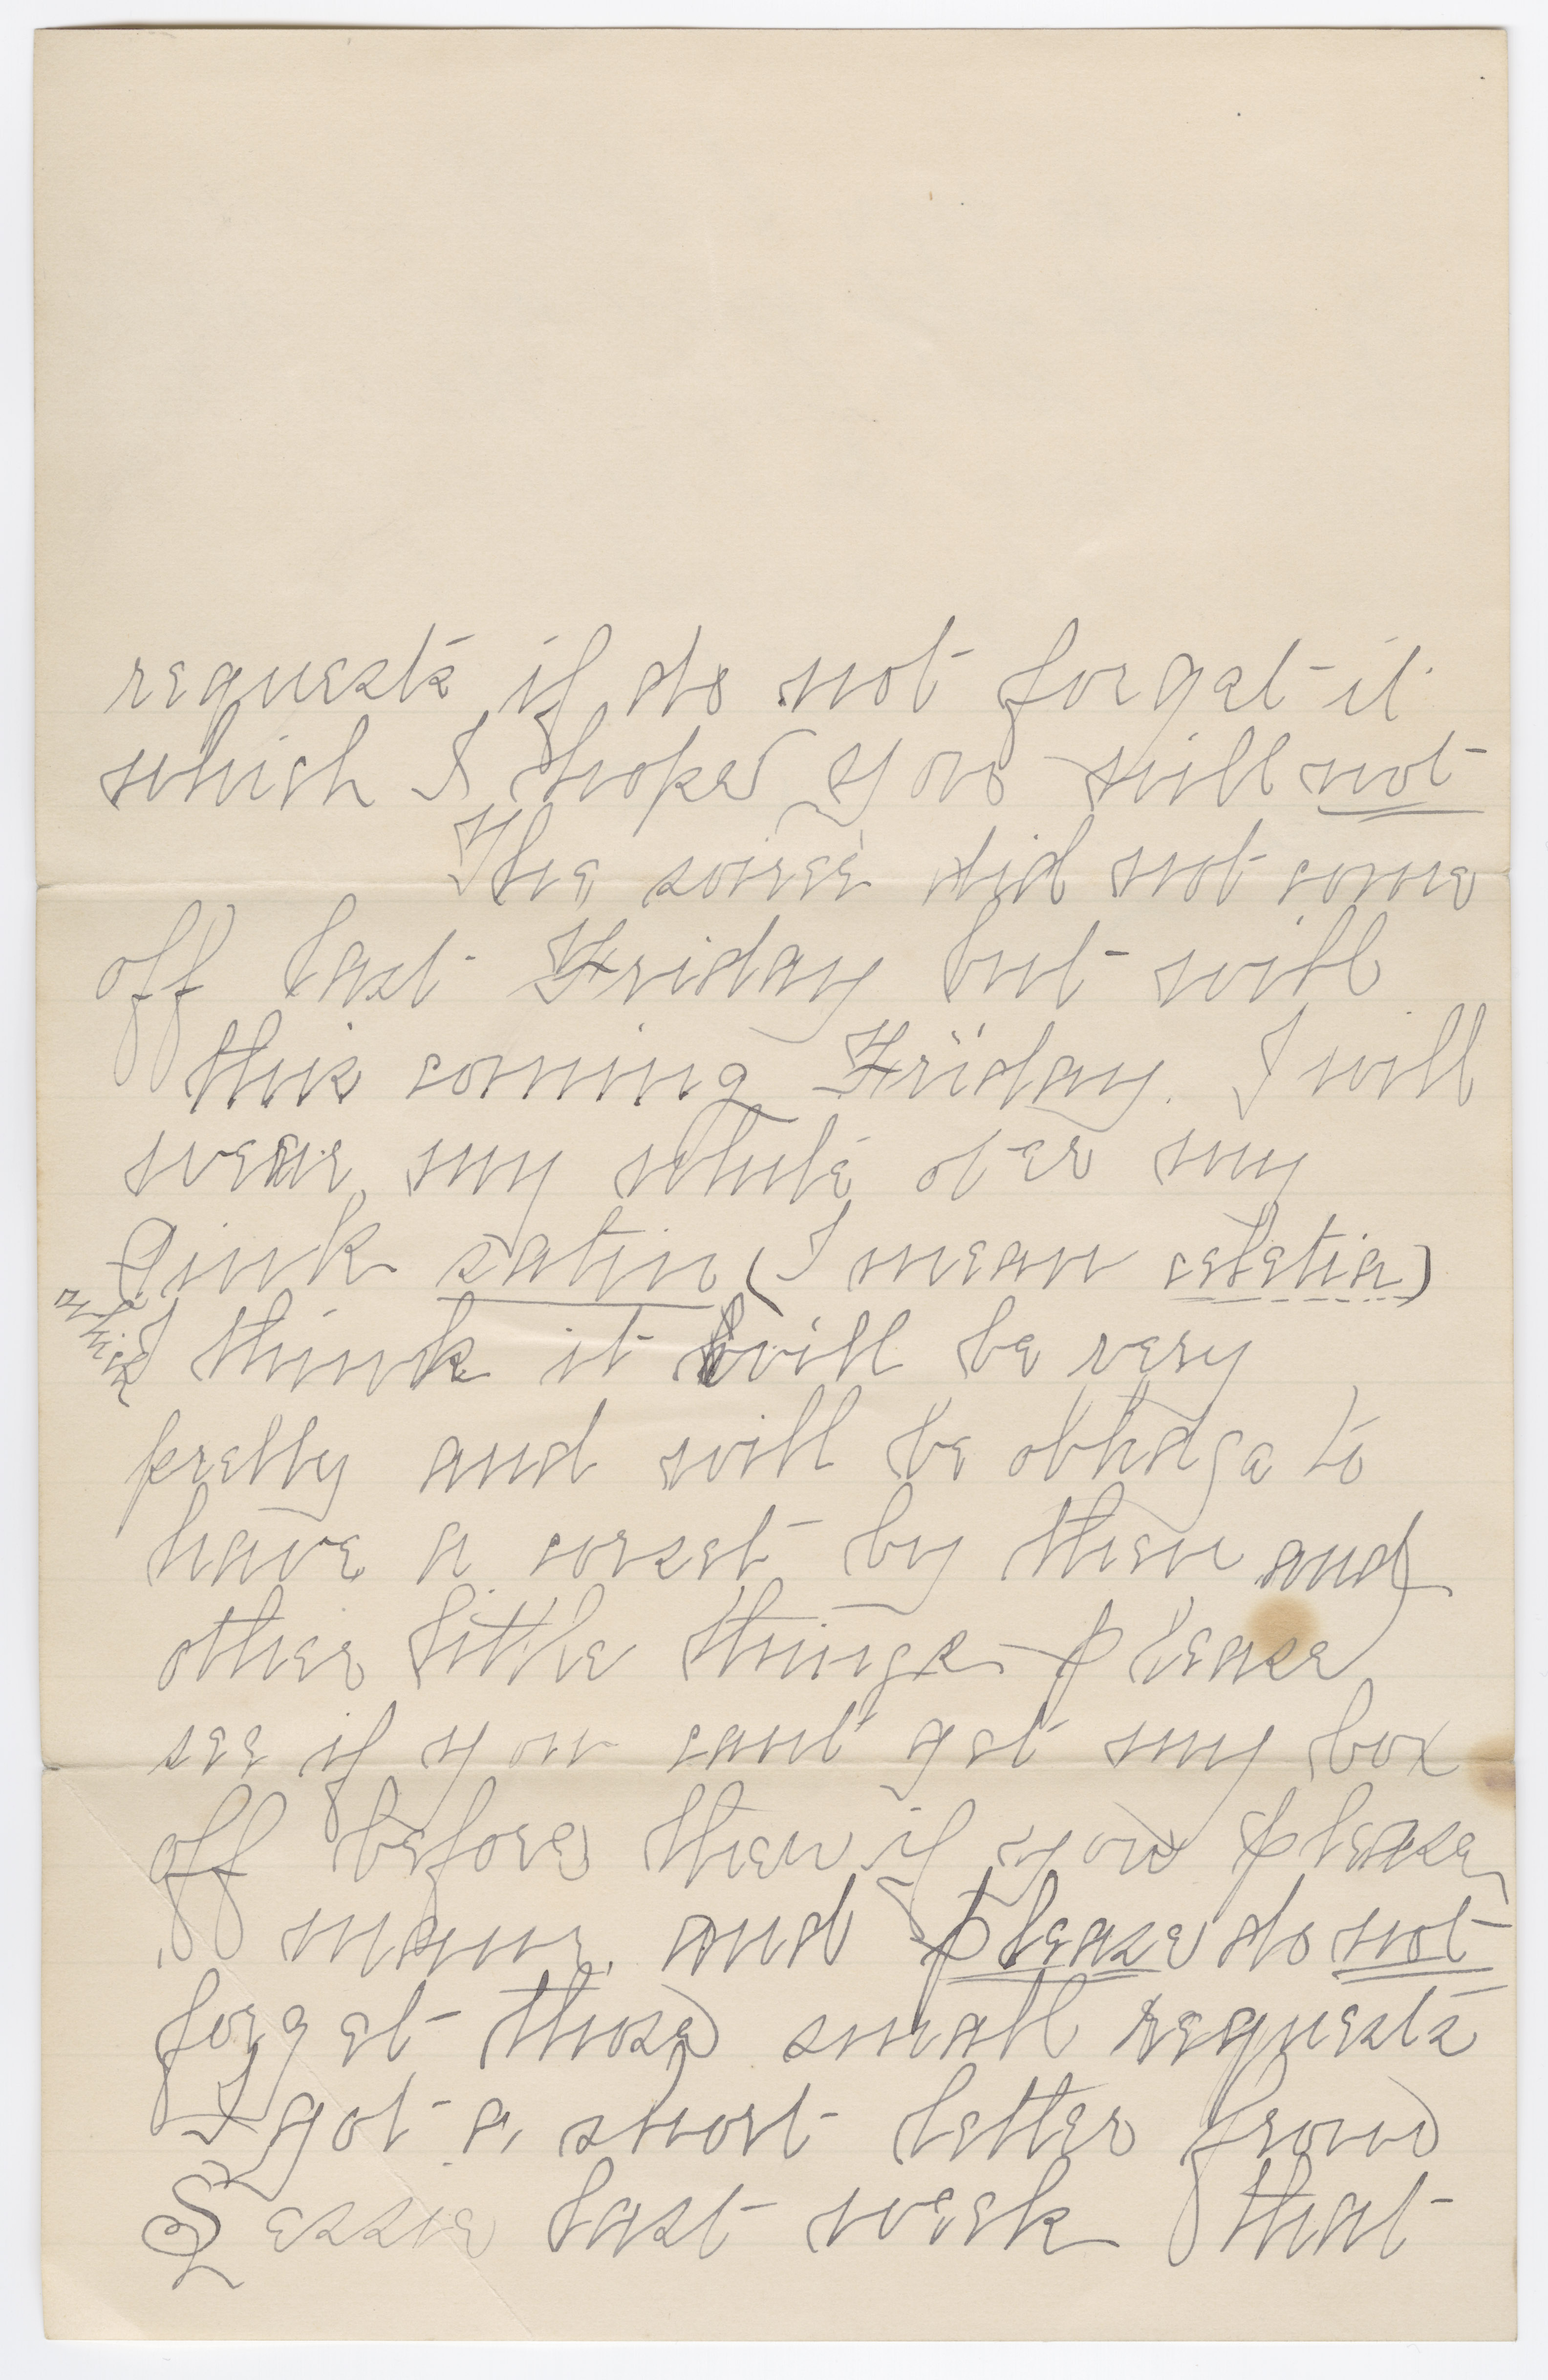 requests if do not forget it
which I hope you will not
The soireé did not come
off last Friday but will
this coming Friday. I will
wear my white over my
Pink satin (I mean celetia)
which I think it will be very
pretty and will be oblidge to
have a corset by then and
other little things please
see if you cant get my box
off before then if you please
mam. and please do not
forget those small requests
I got a short letter from
Lessie last week that